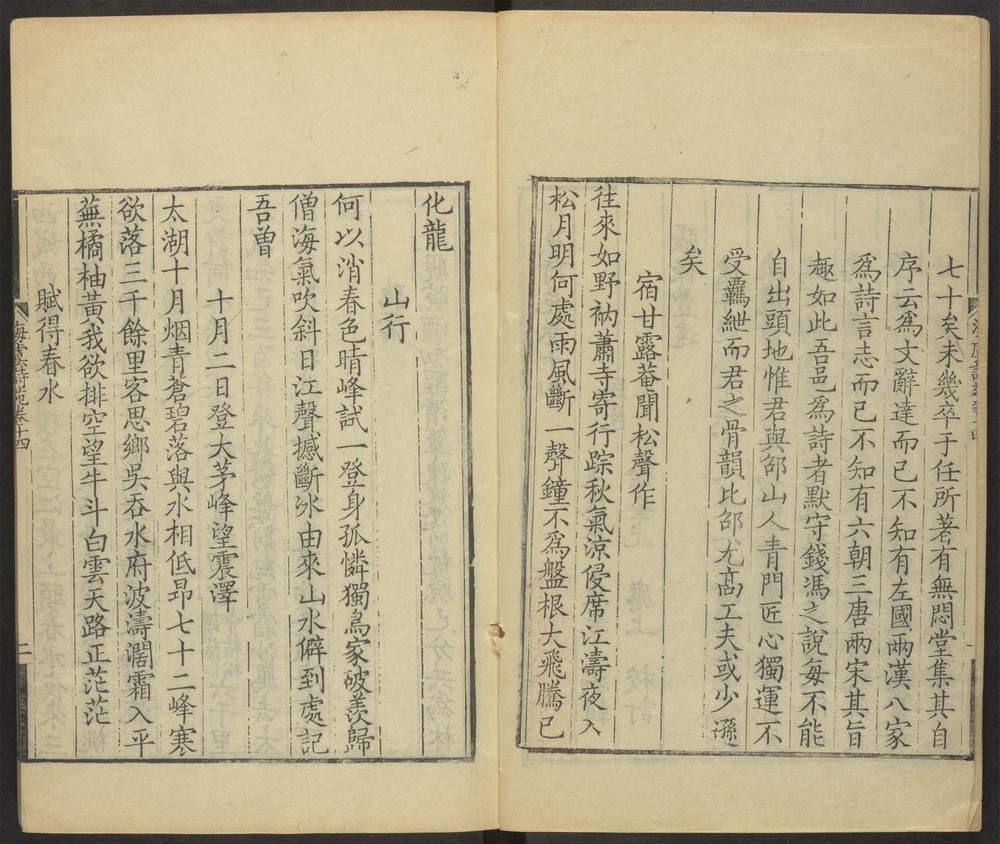 七十矣未幾卒于任所著有無悶堂集其自
序云爲文辭達而已不知有左國兩漢八家
爲詩言志而已不知有六朝三唐兩宋其旨
趣如此吾邑爲詩者默守錢馮之說每不能
自出頭地惟君與邵山人青門匠心獨運不
受羈紲而君之骨韻比邵尤高工夫或少遜
矣
宿甘露菴聞松聲作
往來如野衲蕭寺寄行踪秋氣涼侵席江濤夜入
松月明何處雨風斷一聲鐘不爲盤根大飛騰已
化龍
山行
何以消春色晴峰試一登身孤憐獨鳥家破羨歸
僧海氣吹斜日江聲撼斷冰由來山水僻到處記
吾曾
十月二日登大茅峰望震澤
太湖十月烟青蒼碧落與水相低昂七十二峰寒
欲落三千餘里客思鄉吳吞水府波濤濶霜入平
蕪橘柚黃我欲排空望牛斗白雲天路正茫茫
賦得春水
海虞詩苑卷十四
二